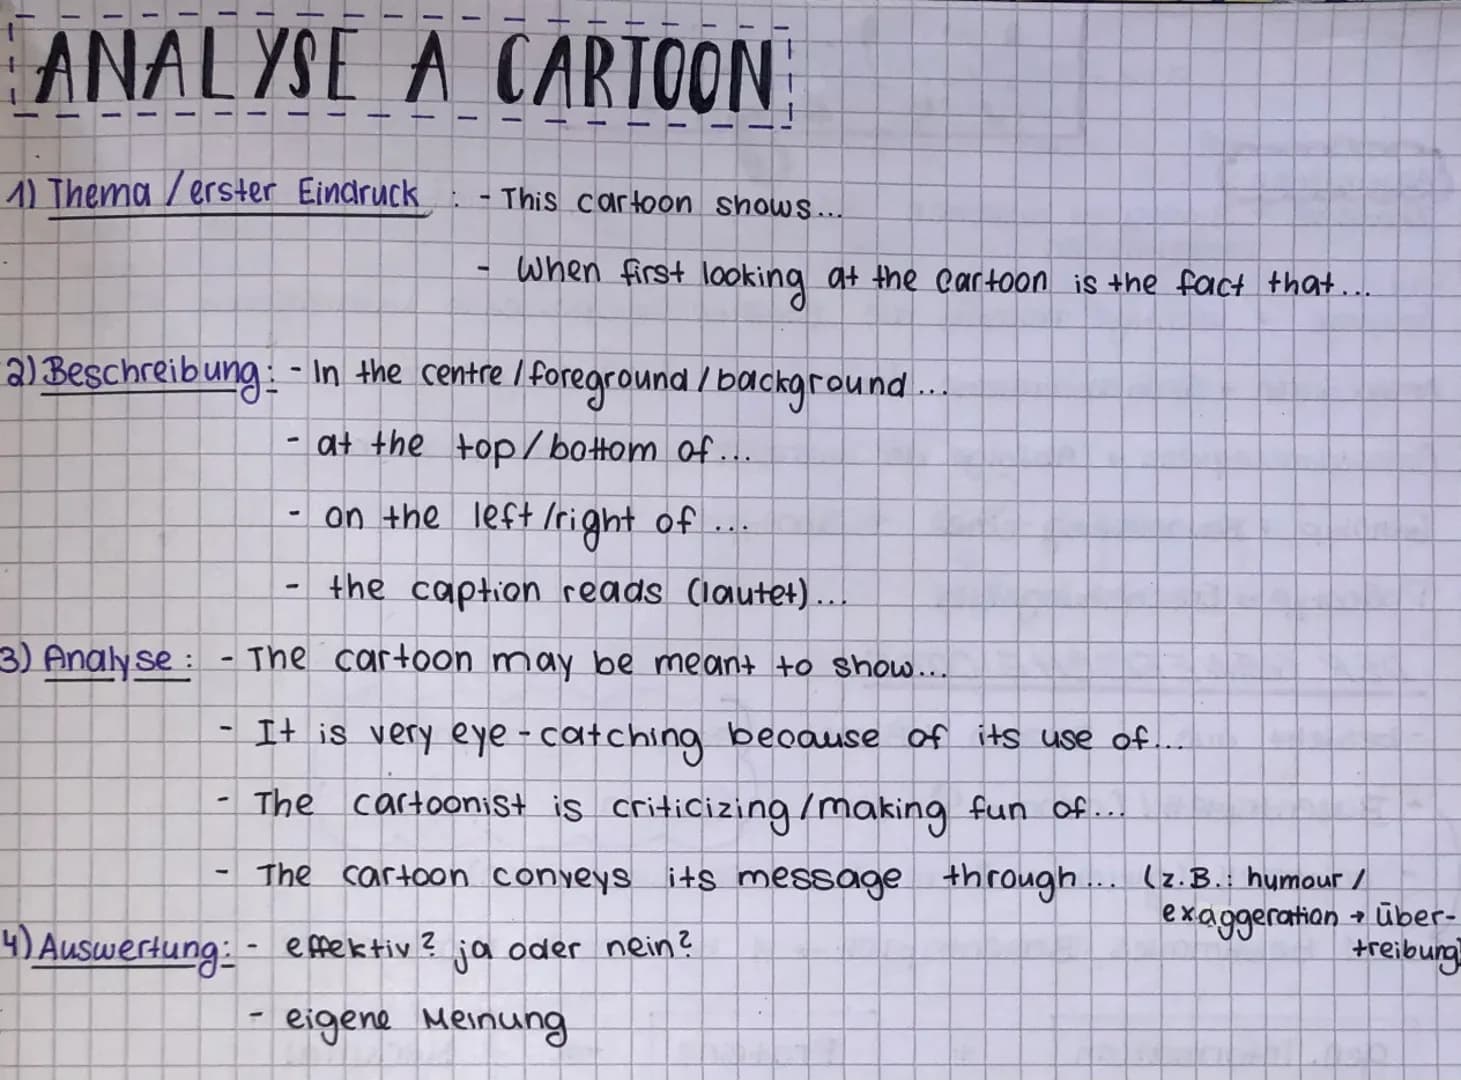 ANALYSE A CARTOON
1) Thema / erster Eindruck : - This cartoon shows...
- When first looking at the cartoon is the fact that...
2) Beschreibung: - In the centre / foreground / background...
- at the top / bottom of...
- on the left / right of ...
- the caption reads (lautet)...
3) Analyse : - The cartoon may be meant to show...
- It is very eye-catching because of its use of...
- The cartoonist is criticizing / making fun of...
- The cartoon conveys its message through... (z.B.: humour /
exaggeration → Über-
treibung)
4) Auswertung: - effektiv? ja oder nein?
- eigene Meinung